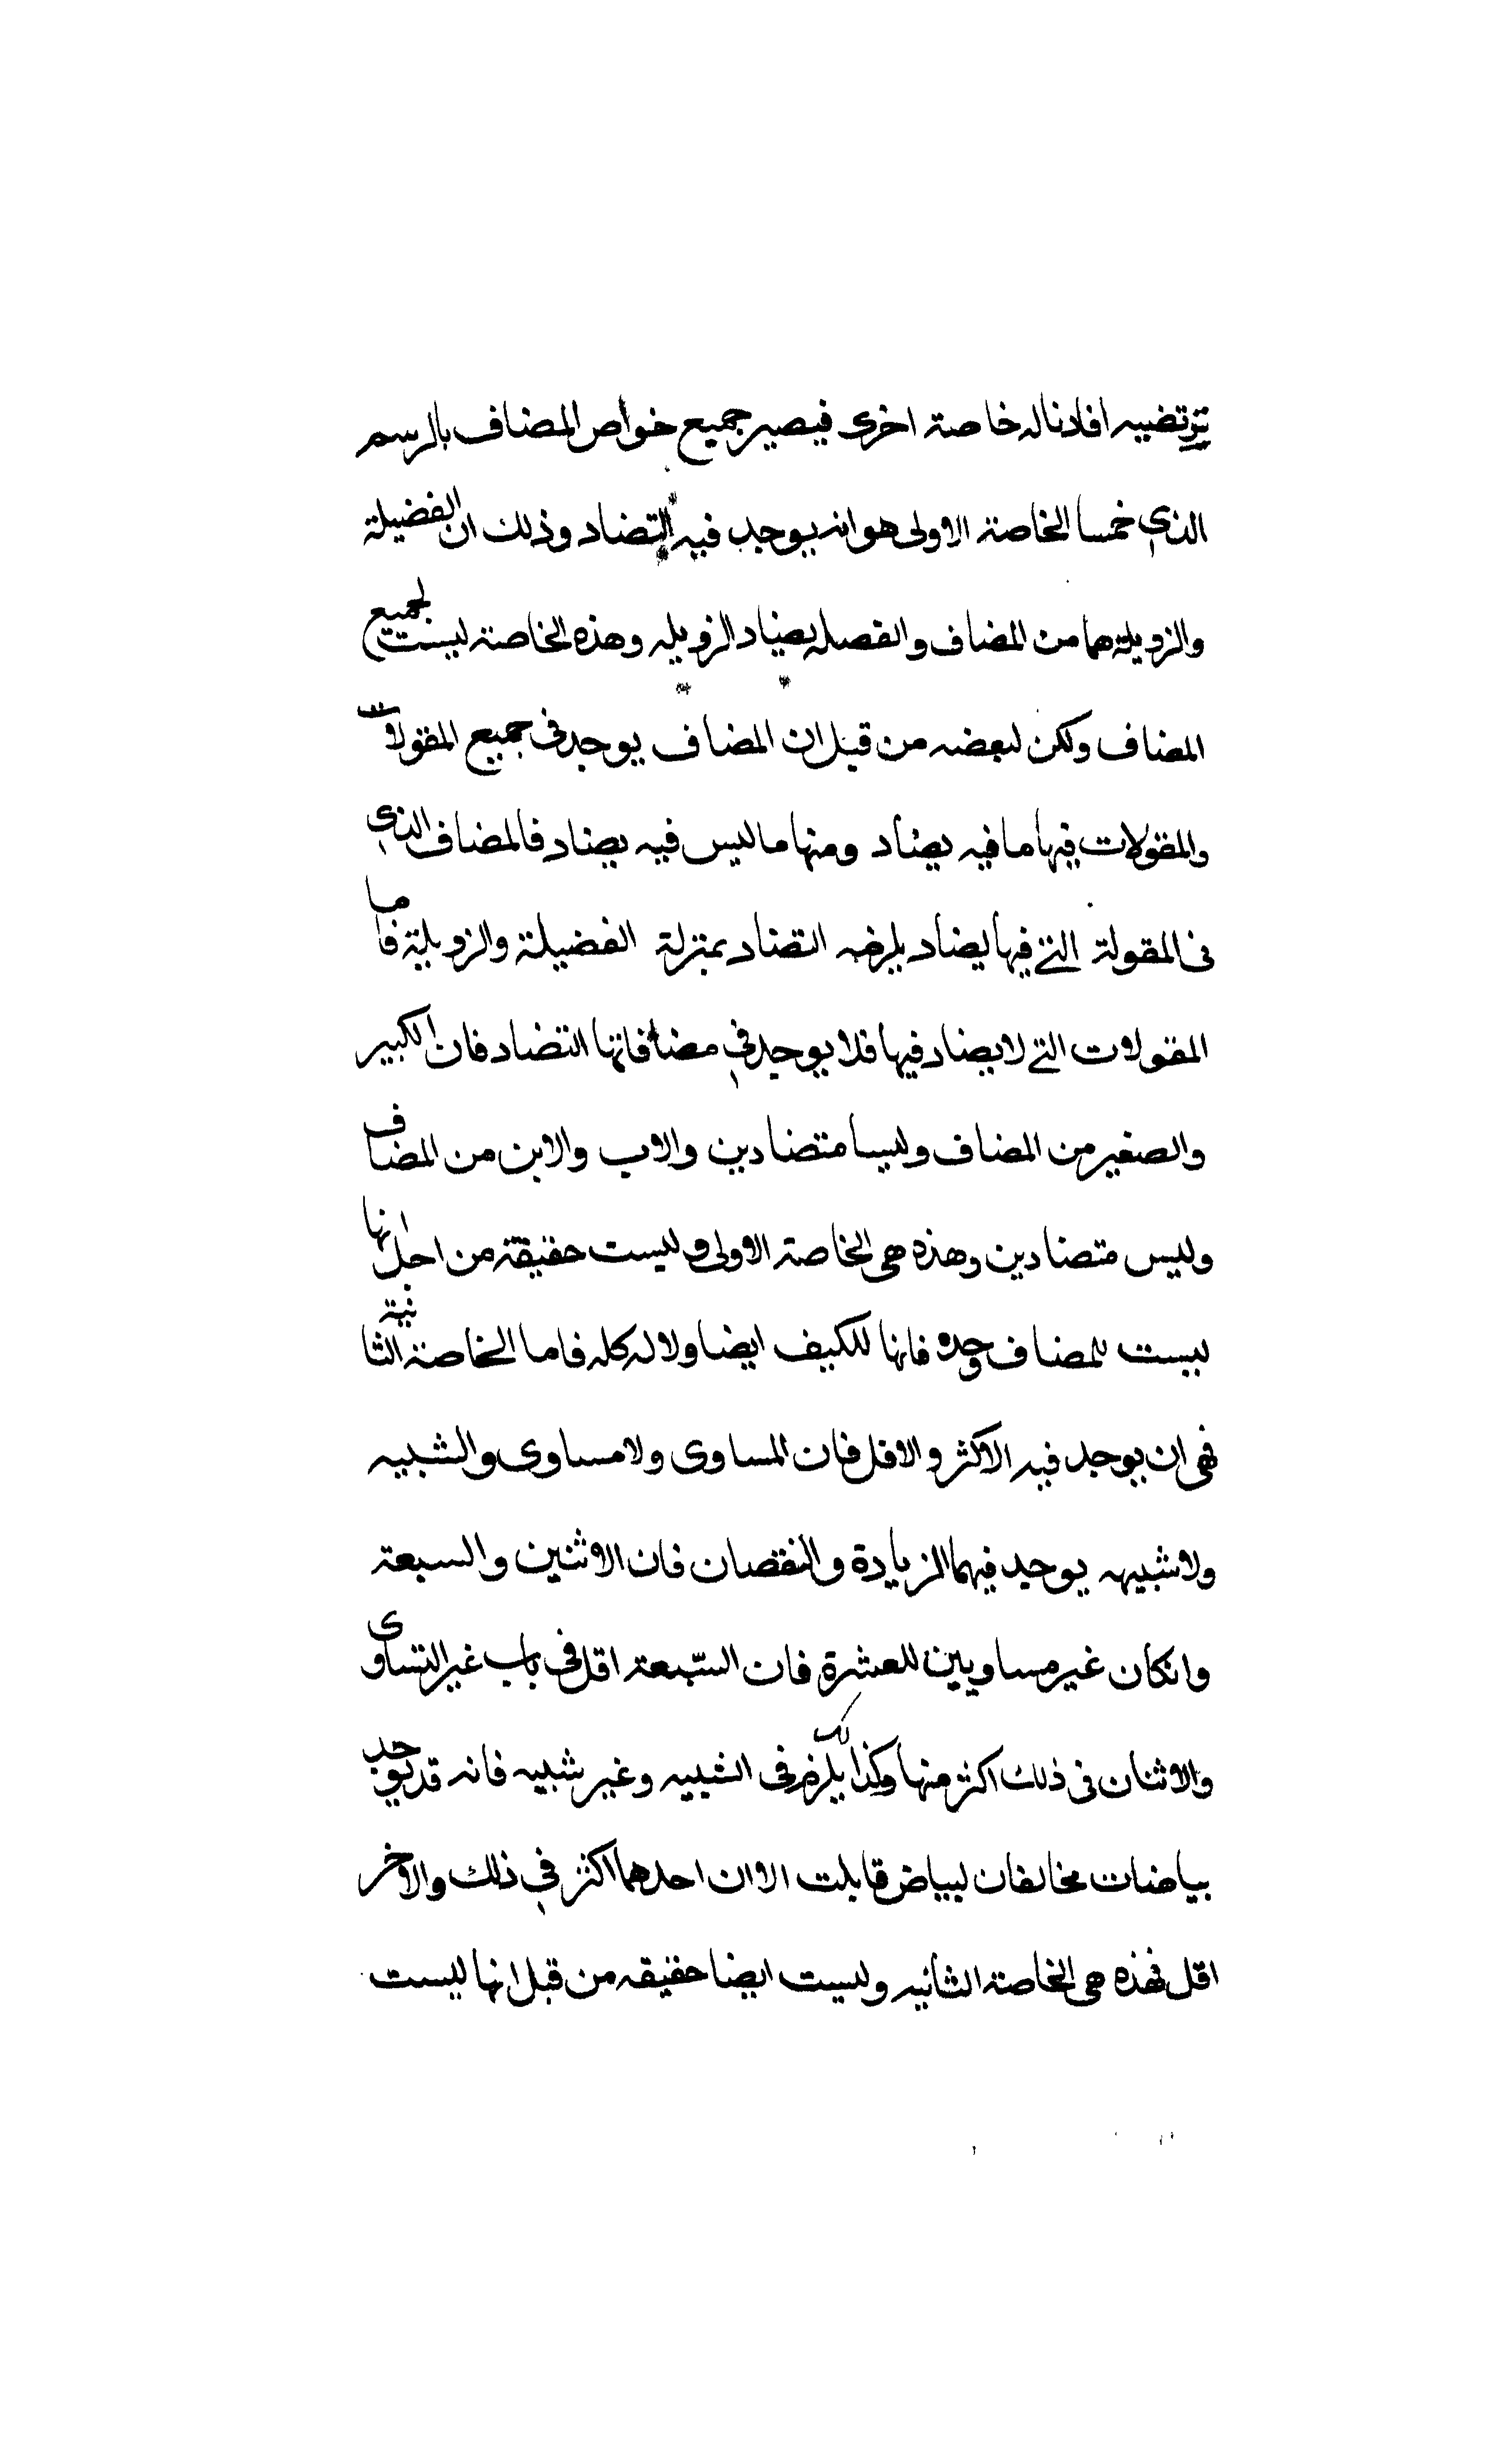 ترتضيه افادنا له خاصة اخرى فيصير جميع خواص المضاف بالرسم
الذي خمسا الخاصة الاولى هو انه يوجد فيه التضاد وذلك ان الفضيلة
والرذيلة هما من المضاف والفصله يضاد الرذيله وهذه الخاصة ليست لجميع
المضاف ولكن لبعضه من قبل ان المضاف يوجد في جميع المقولات
والمقولات فيها ما فيه يضاد ومنها ما ليس فيه يضاد فالمضاف الذي
في المقولة التي فيها يضاد يلزمه التضاد بمنزلة الفضيلة والرذيلة فاما
المقولات التي لا يضاد فيها فلا يوجد في مضافاتها التضاد فان الكبير
والصغير من المضاف وليسا متضادين والاب والابن من المضاف
وليس متضادين وهذه هي الخاصة الاولى وليست حقيقة من اجل انها
ليست للمضاف وحده فانها للكيف ايضا ولا له كله فاما الخاصة الثانية
فهي ان يوجد فيه الاكثر والاقل فان المساوى ولا مساوى والشبيه
ولا شبيه يوجد فيهما الزيادة والنقصان فان الاثنين والسبعة
وانكان غير مساويين للعشرة فان السبعة اقل في باب غير التساوى
والاثنان في ذلك اكثر منها وكذلك يلزم في الشبيه وغير شبيه فانه قد يوجد
بياضات مخالفان لبياض قابلت الا ان احدهما اكثر في ذلك والاخر
اقل فهذه هي الخاصة الثانيه وليست ايضا حقيقه من قبل انها ليست